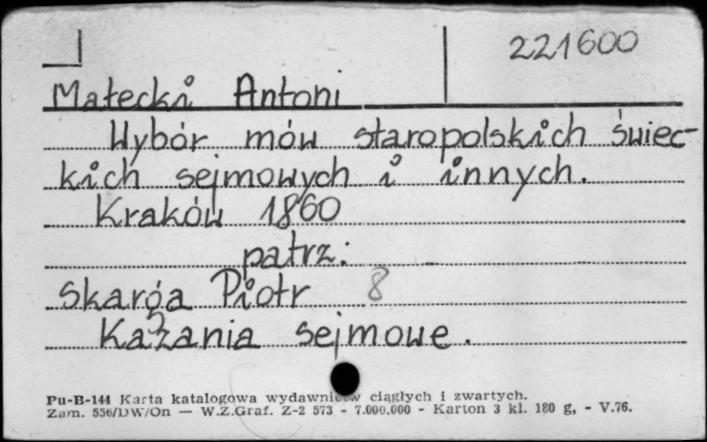 221600
Małecki Antoni
Wybór mów staropolskich świec-
kich sejmowych i innych.
Kraków 1860
patrz:
Skarga Piotr 8
Kazania sejmowe.
Pu-B-144 Karta katalogowa wydawnictw ciągłych i zwartych.
Zam. 556/DW/On — W.Z.Graf. Z-2 573 - 7.000.000 - Karton 3 kl. 180 g, - V.76.